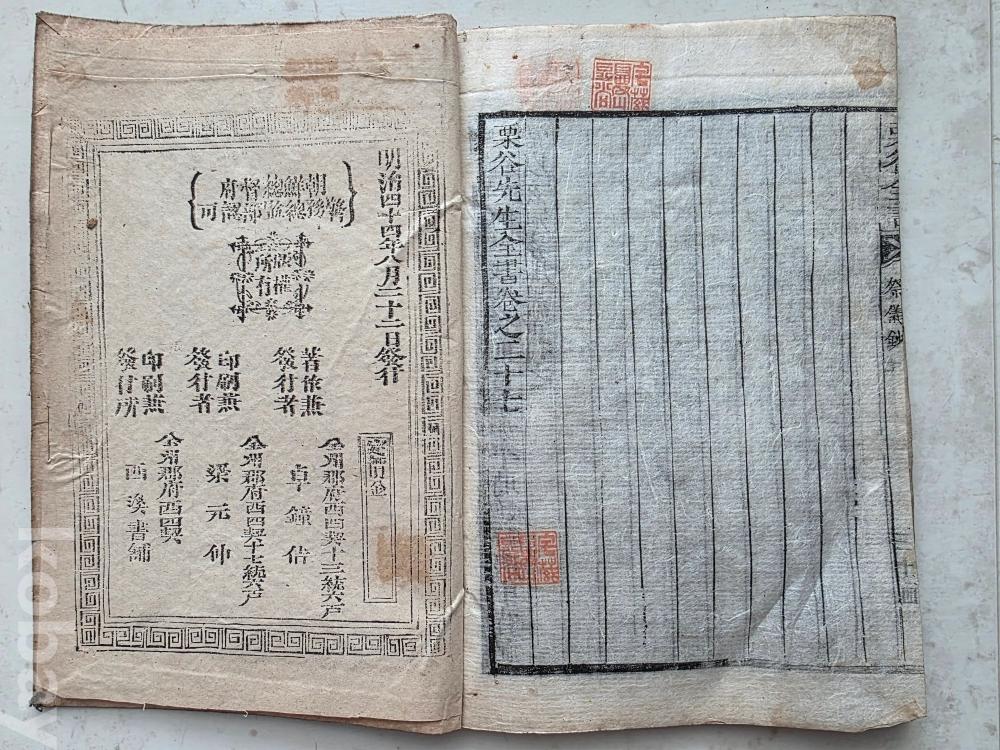 栗谷全書
祭儀鈔
栗谷先生全書卷之二十七
明治四十四年八月二十二日發行
朝鮮總督府
警務總監部認可
版權
所有
金
著作兼
發行者
全州郡府西四契十三統六戶
卓鐘佶
印刷兼
發行者
全州郡府西四契十七統六戶
梁元仲
印刷兼
發行所
全州郡府西四契
西溪書舖
kobay